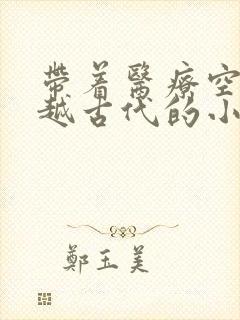 帶着醫療空
越古代的小
鄭玉美